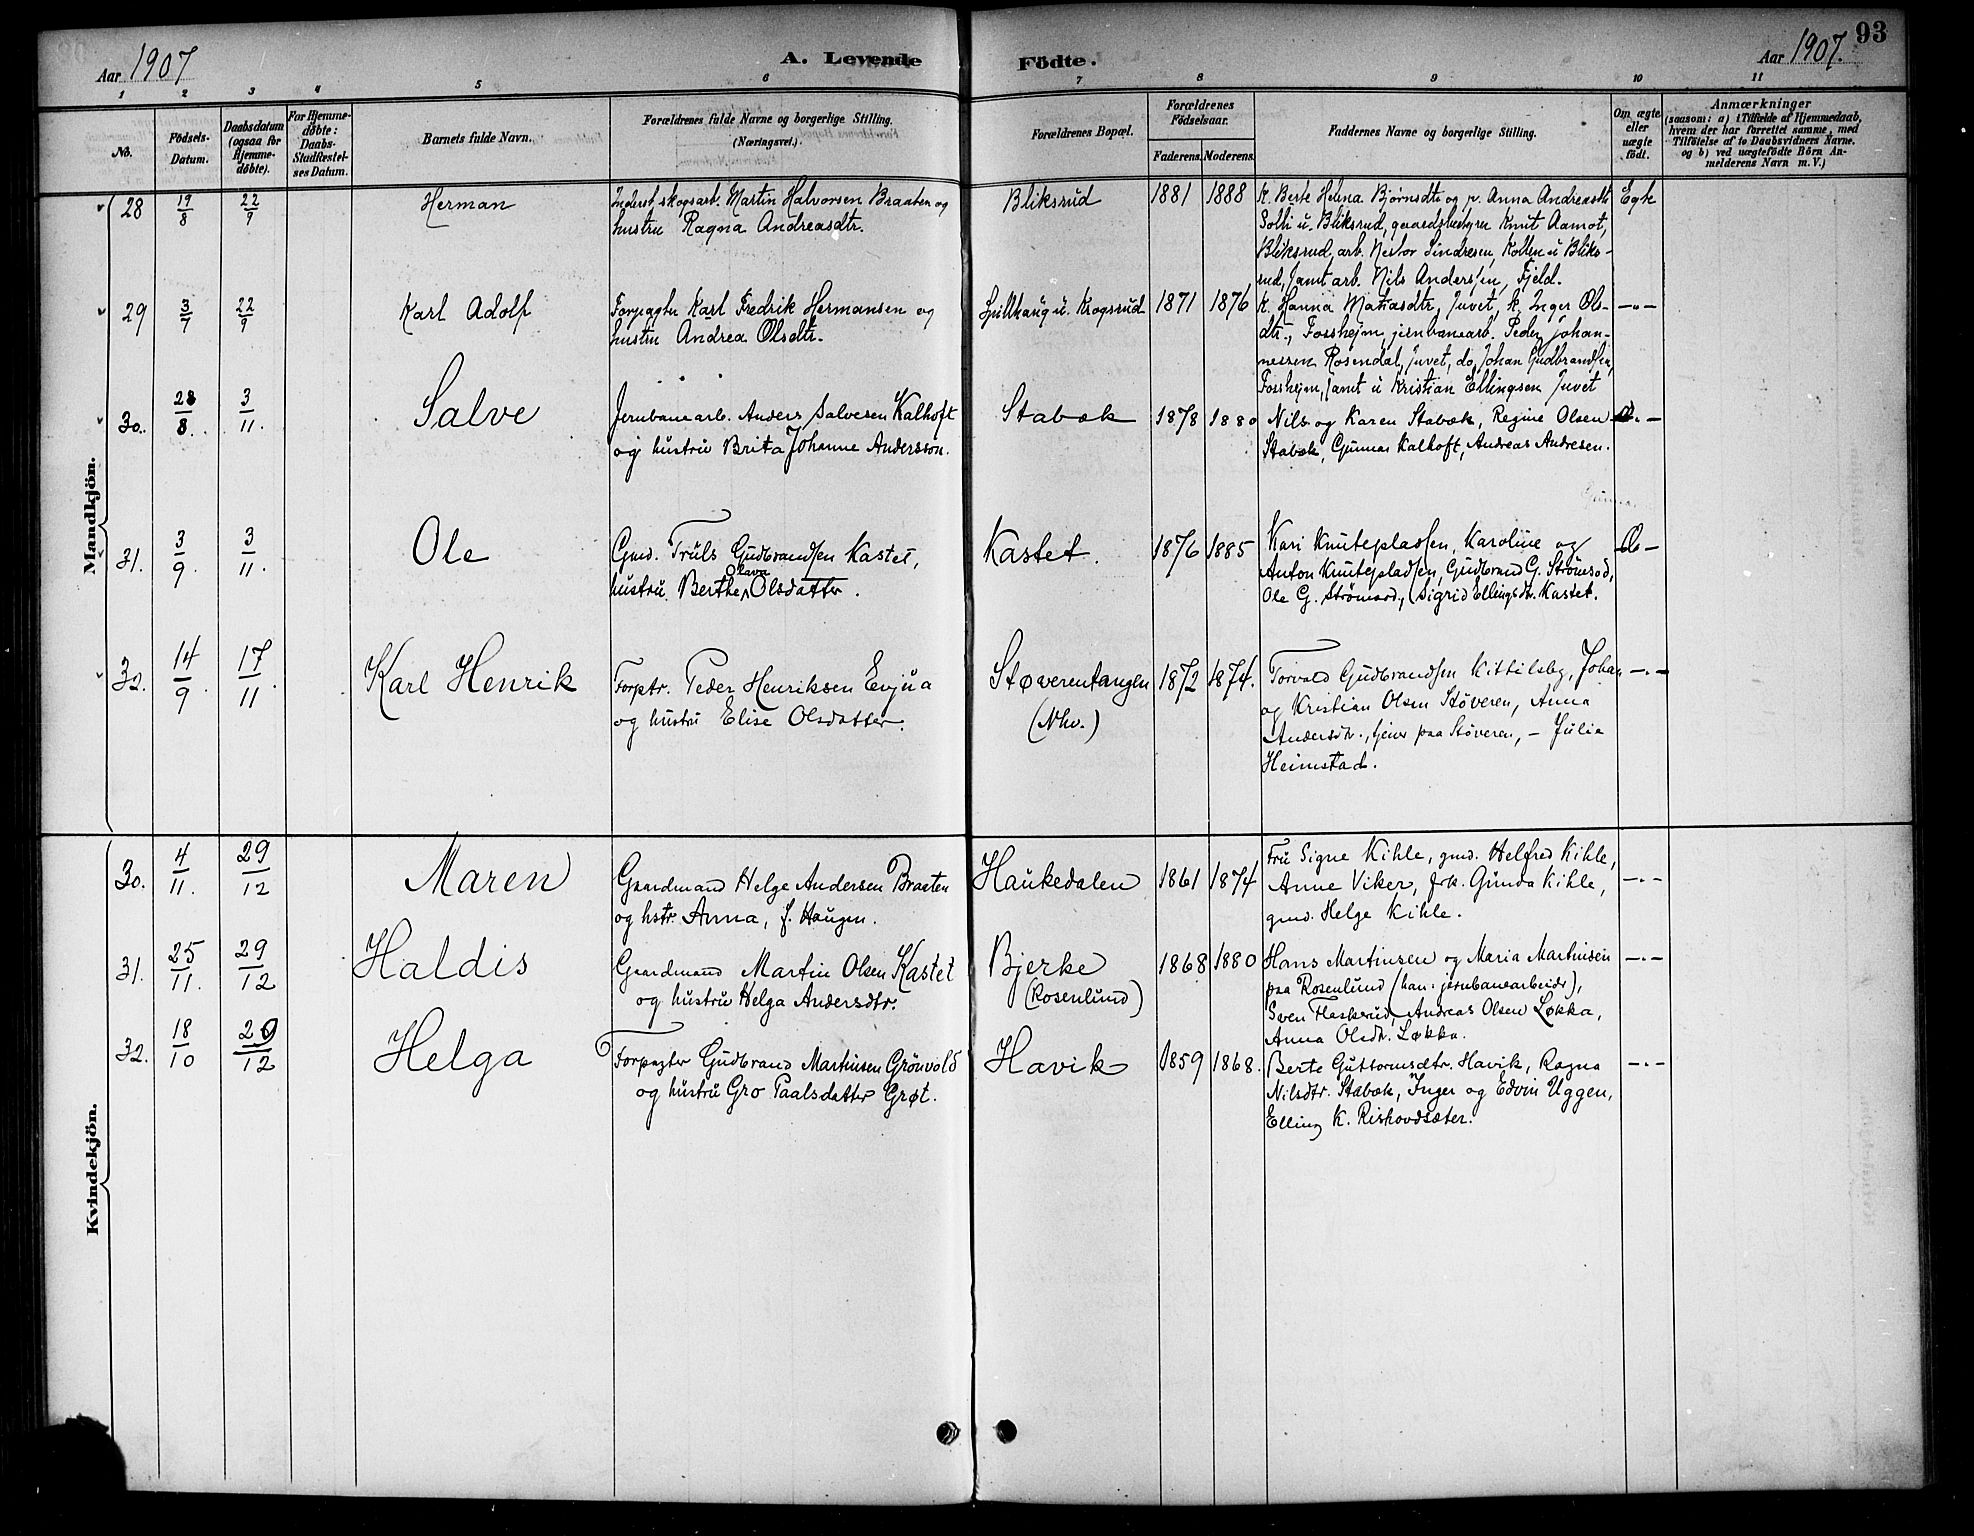 93
Aar 1907
A. Levende Födte.
Aar 1907.
1 2 3 4 5 6 7 8 9 10 11
No.
Födsels-
Datum.
Daabsdatum
(ogsaa for
Hjemme-
döbte).
For Hjemme-
døbte:
Daabs-
Stadfæstel-
ses Datum.
Barnets fulde Navn.
Forældrenes fulde Navne og borgerlige Stilling.
(Næringsvei.)
Forældrenes Bopæl.
Forældrenes
Födselsaar.
Faderens. Moderens.
Faddernes Navne og borgerlige Stilling.
Om ægte
eller
uægte
födt.
Anmærkninger
(saasom: a) i Tilfælde af Hjemmedaab,
hvem der har forrettet samme, med
Tilföielse af to Daabsvidners Navne.
og b) ved uægtefödte Börn An-
melderens Navn m. V.)
Mandkjön.
28
19/8
22/9
Herman
skogsarb. Martin Halvorsen Braaten og
hustru Ragna Andreasdtr.
Bliksrud
1881 1888
K. Berte Helena Bjørnsdtr og p. Anna Andreasdtr
Solli u. Bliksrud, gaardsbestyrer Knut Aamot,
Bliksrud, arb. Nestor Sindresen, Kollen u Bliks-
rud, samt arb. Nils Anderssen, Fjeld.
Egte
29
3/7
22/9
Karl Adolf
Forpagter Karl Fredrik Hermansen og
hustru Andrea Olsdtr.
Spillhaug u. Krogsrud
1871 1876
K. Hanna Matiasdtr, Juvet, k. Inger Ols-
dtr., Fossheim, jernbanearb. Peder Johan-
nessen Rosendal, Juvet, do, Johan Gudbrandsen,
Fossheim, samt u Kristian Ellingsen Juvet
-"-
30.
28/8.
3/11.
Salve
Jernbanearb. Anders Salvesen Kalhoft
og hustru Brita Johanne Andersson.
Stabæk
1878 1880
Nils og Karen Stabæk, Regine Olsen
Stabæk, Gunnar Kalhoft, Andreas Andresen.
31.
3/9.
3/11.
Ole
Gmd. Truls Gudbrandsen Kastet,
hustru Berthe Olava Olsdatter.
Kastet.
1876 1885
Kari Knutepladsen, Karoline og
Anton Knutepladsen, Gudbrand G. Strømsod,
Ole G. Strømsod, Sigrid Ellingsdtr. Kastet.
32.
14/9.
17/11.
Karl Henrik
Forptr. Peder Henriksen Evjua
og hustru Elise Olsdatter.
Støverentangen
(Nhv.)
1872 1874.
Torvald Gudbrandsen Kittilsby, Johan
og Kristian Olsen Støveren, Anna
Andersdtr., tjener paa Støveren, - Julia
Heimstad.
-"-
Kvindekjön.
30.
4/11.
29/12
Maren
Gaardmand Helge Andersen Braaten
og hstr. Anna, f. Haugen.
Haukedalen
1861 1874
Fru Signe Kihle, gmd. Helfred Kihle,
Anne Viker, frk. Gunda Kihle,
gmd. Helge Kihle.
-"-
31.
25/11.
29/12
Haldis
Gaardmand Martin Olsen Kastet
og hustru Helga Andersdtr.
Bjerke
(Rosenlund)
1868 1880
Hans Martinsen og Maria Martinsen
paa Rosenlund (han: jernbanearbeider),
Sven Flaskerud, Andreas Olsen Løkka,
Anna Olsdtr. Løkka.
-"-
32.
18/10
29/12
Helga
Forpagter Gudbrand Martinsen Grønvold
og hustru Gro Paalsdatter Grøt.
Havik
1859 1868.
Berte Guttormsdtr. Havik, Ragna
Nilsdtr. Stabæk, Inger og Edvin Uggen,
Elling K. Rishovdsæter.
-"-